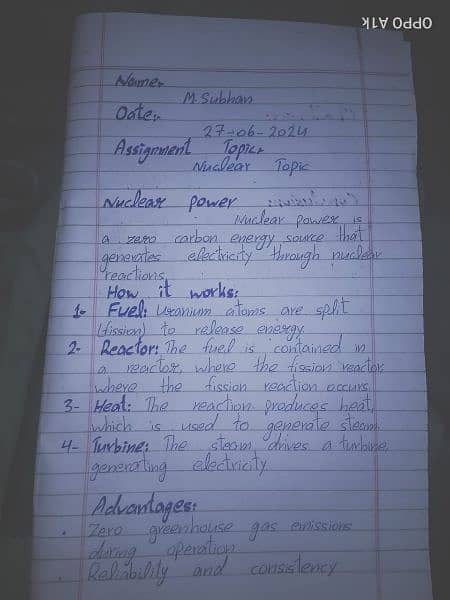 OPPO A1K
Name:
M Subhan
Date:
27-06-2024
Assignment Topic:
Nuclear Topic
Nuclear power
Nuclear power is
a zero carbon energy source that
generates electricity through nuclear
reactions.
How it works:
1- Fuel: Uranium atoms are split
(fission) to release energy.
2- Reactor: The fuel is contained in
a reactor, where the fission reactor
where the fission reaction occurs.
3- Heat: The reaction produces heat,
which is used to generate steam.
4- Turbine: The steam drives a turbine,
generating electricity
Advantages:
. Zero greenhouse gas emissions
during operation
. Reliability and consistency